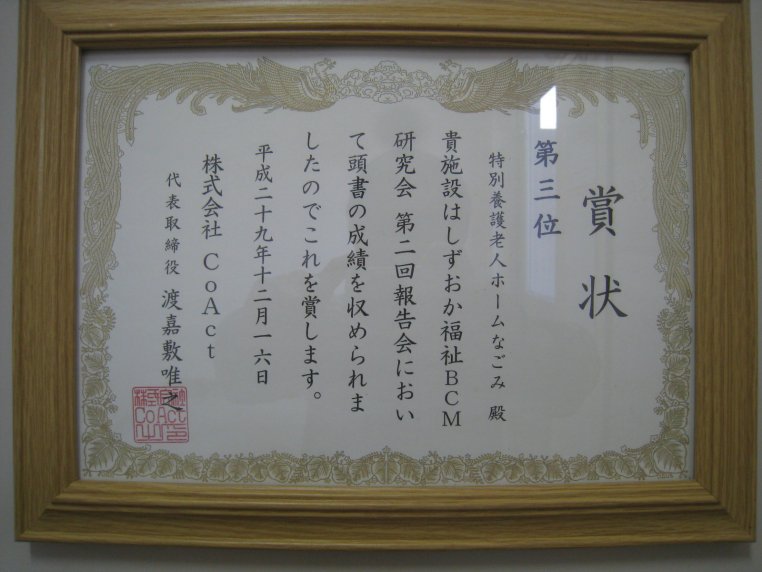 賞状
第三位
特別養護老人ホームなごみ 殿
貴施設はしずおか福祉BCM
研究会 第二回報告会におい
て頭書の成績を収められま
したのでこれを賞します。
平成二十九年十二月一六日
株式会社 CoAct
代表取締役 渡嘉敷唯之
CoAct